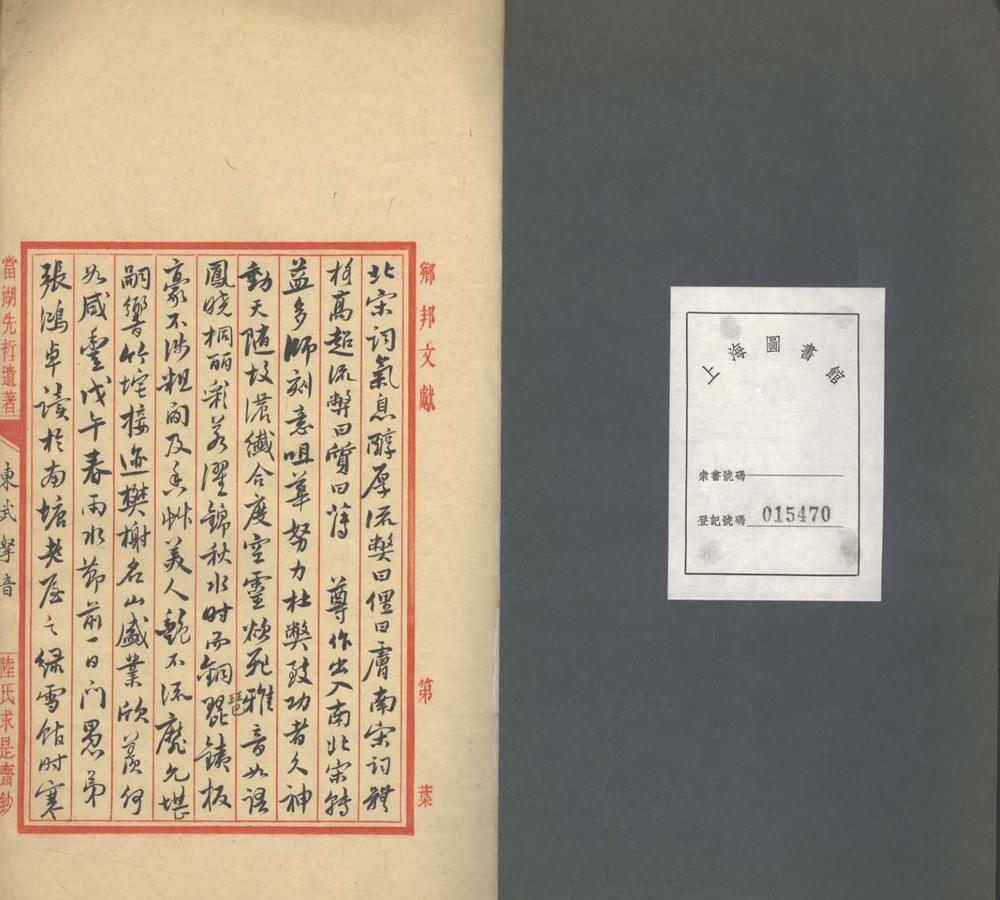 上海圖書館
索書號碼
登記號碼 015470
鄉邦文獻 第 葉
北宋詞氣息醇厚流獘曰俚曰膚南宋詞體
格高超流弊曰質曰薄 尊作出入南北宋轉
益多師刻意咀華努力杜獘致功者久神
動天隨故濃纖合度空靈欲死雅音如語
鳳曉桐丽彩若濯錦秋水时而銅琵琶銕板
豪不涉粗間及香艸美人艷不流靡允堪
嗣響竹垞接迹樊榭名山盛業欣羨何
如咸豐戊午春雨水節前一日門愚弟
張鴻卓讀於南塘老屋之綠雪館时寒
當湖先哲遺著 東武挐音 陸氏求是齋鈔